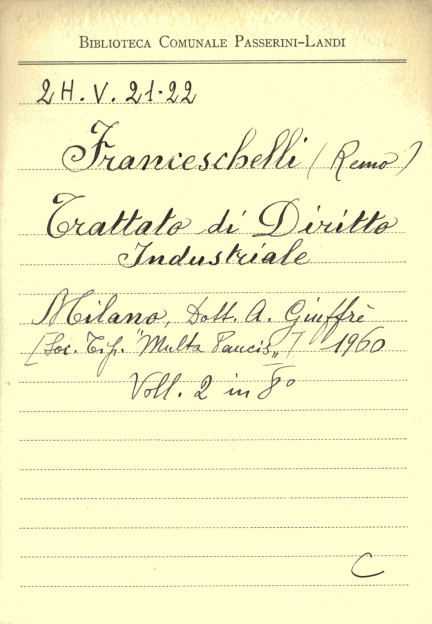 BIBLIOTECA COMUNALE PASSERINI-LANDI
2H. V. 21-22
Franceschelli (Remo)
Trattato di Diritto
Industriale
Milano, Dott. A. Giuffrè
[Soc. Tip. "Multa Paucis„] 1960
Voll. 2 in 8°
C